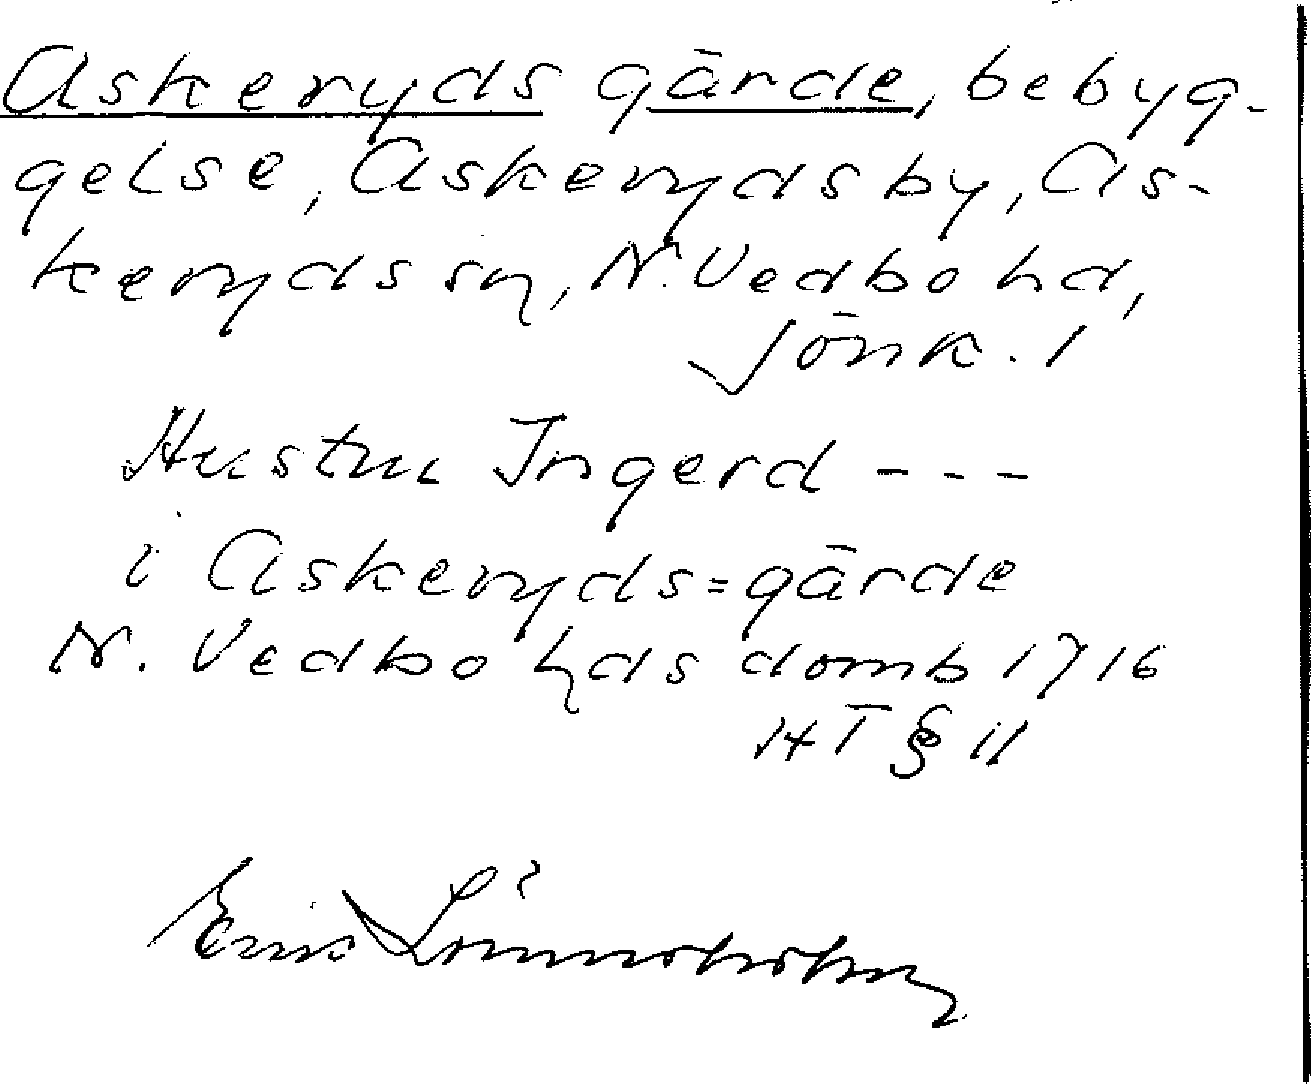 Askeryds gärde, bebyg-
gelse, Askerydsby, As-
keryds sn, N. Vedbo hd,
Jönk. l
Hustru Ingerd ---
i Askeryds=gärde
N. Vedbo hds domb 1716
HT § 11
Erik Lönnerholm